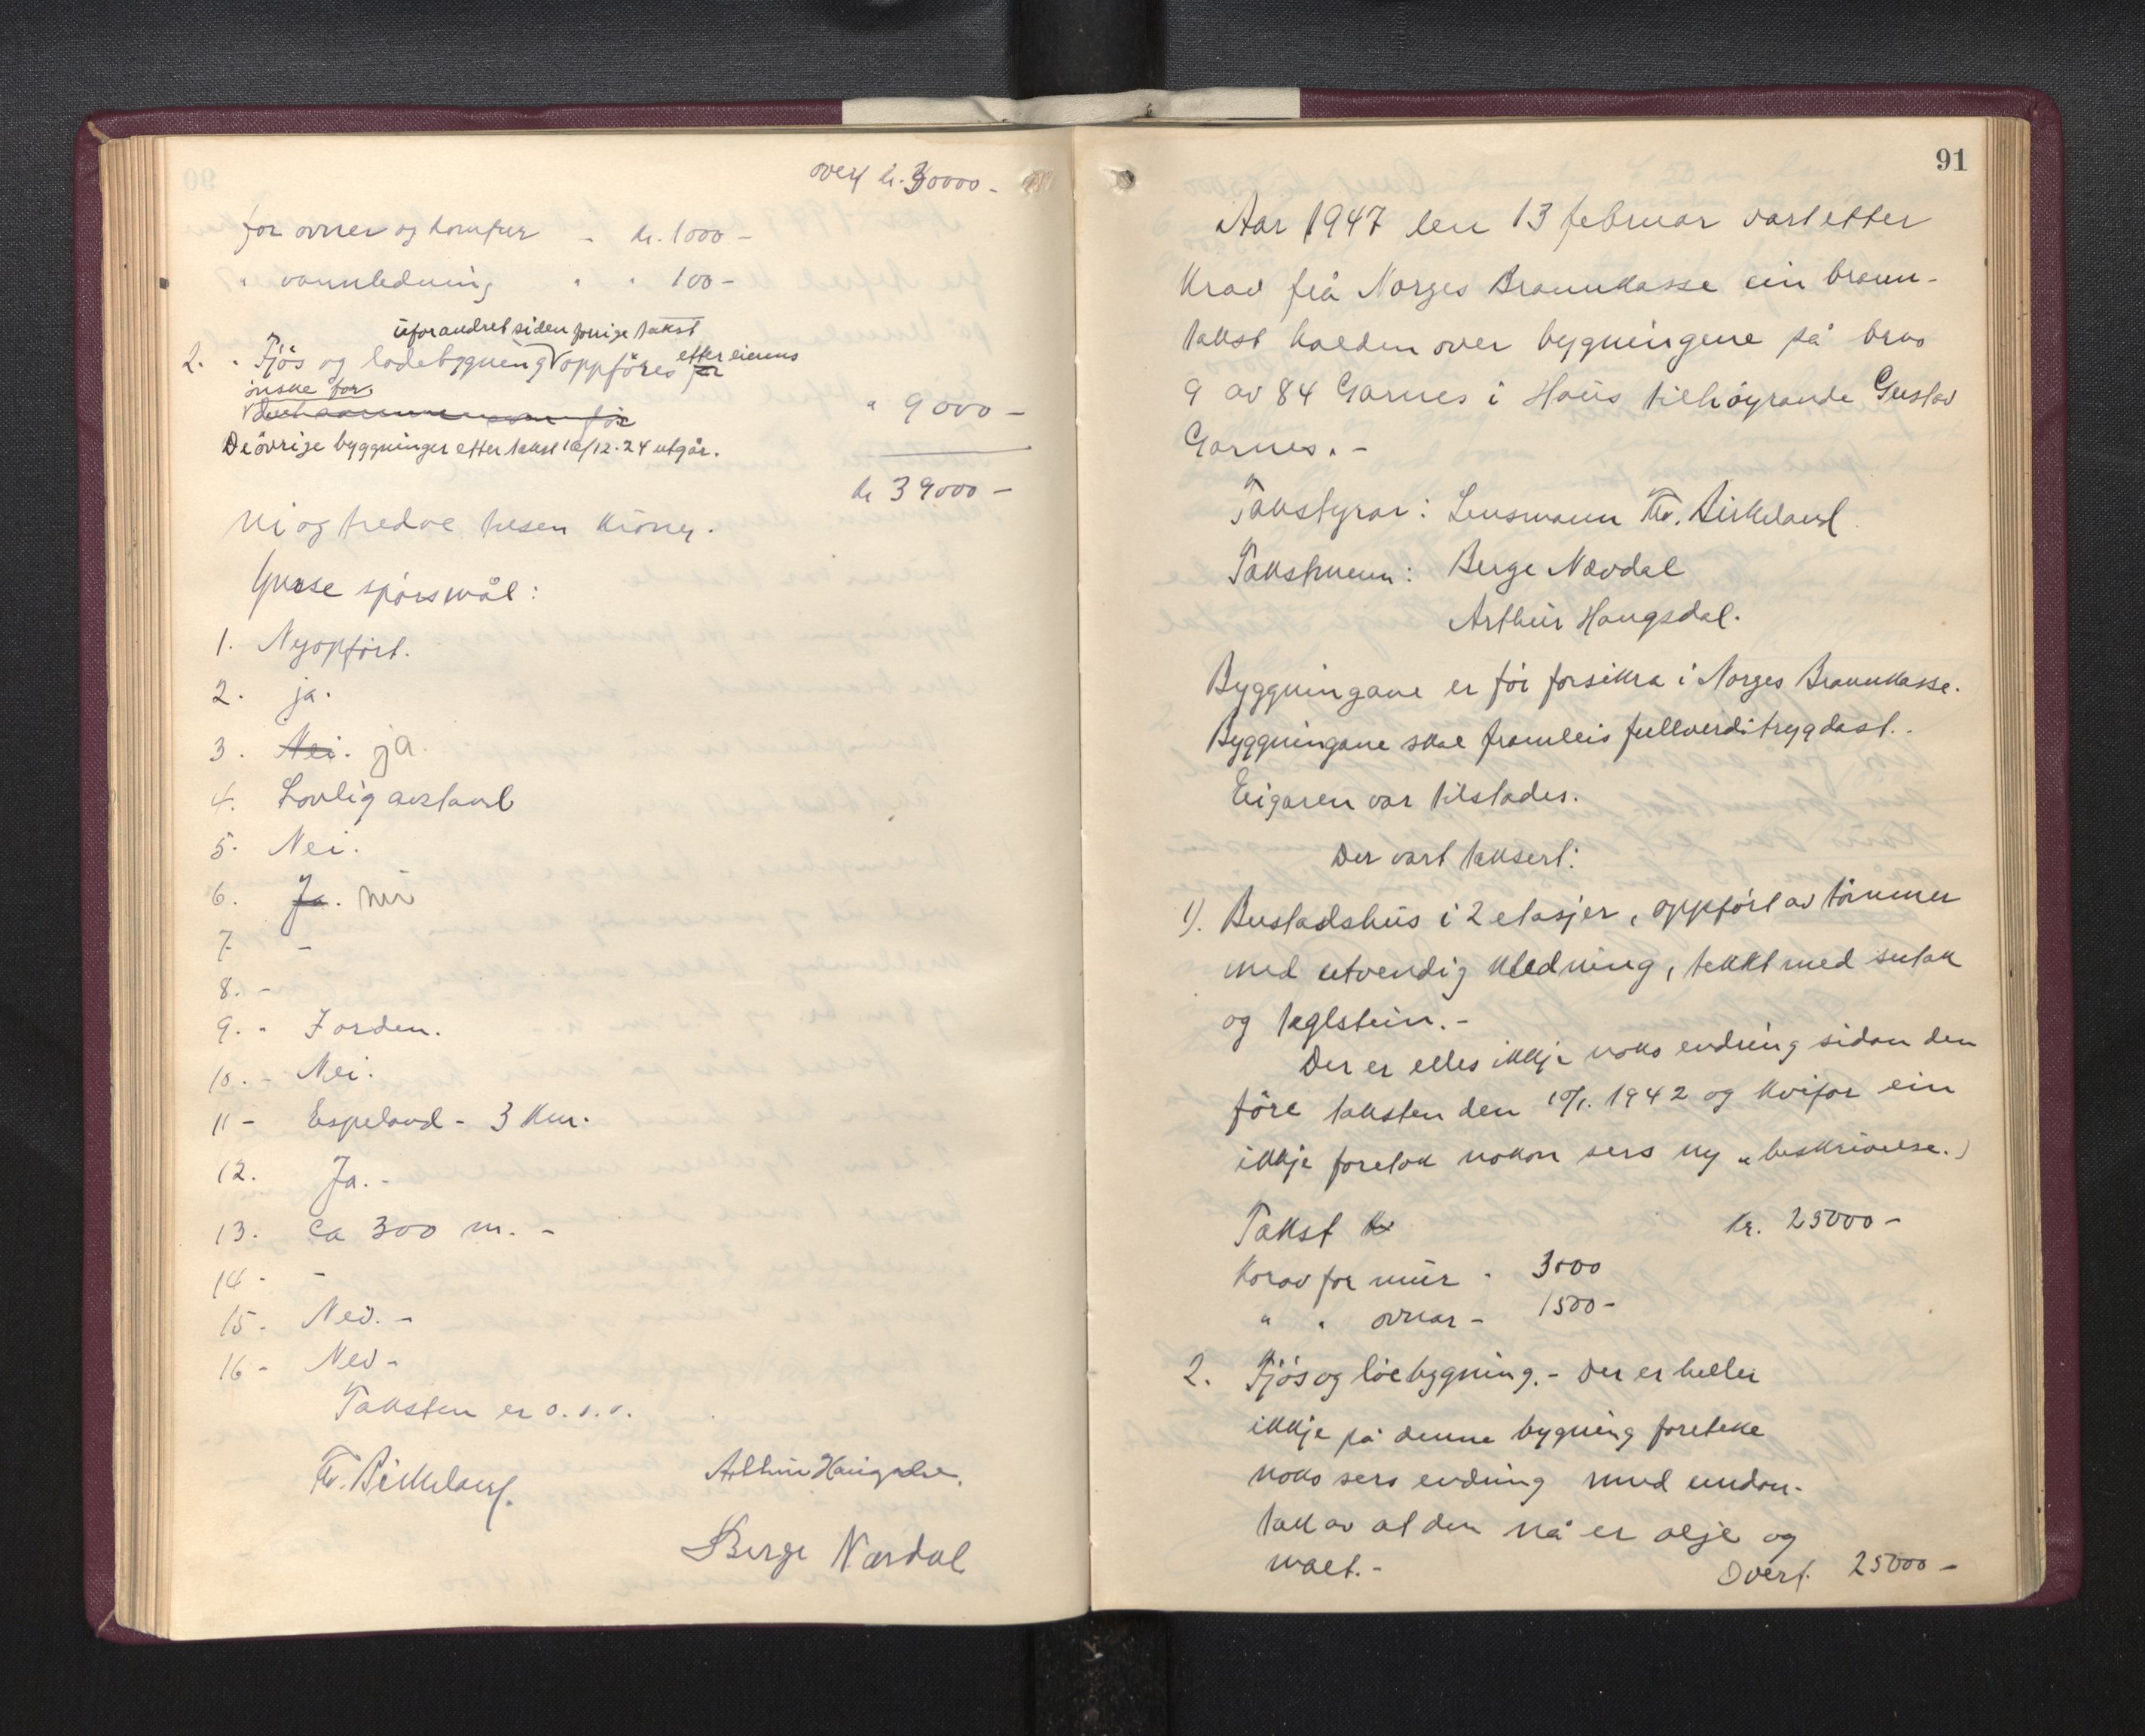 overf kr. 30000 -
for ovner og komfur - kr. 1000 -
" vannledning " " 100 -
uforandret siden forrige takst
2. " Fjös og lödebyggning oppföres for efter eierens
önske for
De övrige byggninger efter takst 10/12-24 utgår.
" 9000 -
kr 39000 -
Ni og tredve tusen kroner.
Gvase spörsmål:
1. Nyopfört.
2. ja.
3. Nei. ja.
4. Lovlig avstand
5. Nei.
6. Ja. nei
7 -
8. -
9. - Jorden.
10. - Nei.
11 - Espeland - 3 km.
12. Ja. -
13. ca 300 m. -
14 - -
15 - Nei. -
16 - Nei -
Taksten er o.s.v.
Th. Birkeland. Arthur Haugsdal.
Berge Nævdal
91
Aar 1947 den 13 februar vart etter
krav frå Norges Brannkasse ein brann-
takst halden over bygningene på bruo
9 av 84 Garnes i Haus tilhöyrande Gustav
Garnes. -
Takstyrar: Lensmann Th. Birkeland
Takstmenn: Berge Nævdal
Arthur Haugsdal.
Byggningane er för forsikra i Norges Brannkasse.
Byggningane skal framleis fullverditrygdast. .
Eigaren var tilstades.
Der vart taksert:
1). Bustadshus i 2 etasjer, oppfört av tömmer
med utvendig kledning, tekkt med sutak
og teglstein. -
Der er elles ikkje noko endring sidan den
före taksten den 10/1. 1942 og kvifor ein
ikkje foretok nokon sers ny "beskrivelse.)
Takst kr kr. 25000 -
Korav for mur - 3000
" " ovnar - 1500 -
2. Fjös og löebygning. - Der er heller
ikkje på denne bygning foreteke
noko sers endring med undan-
tak av at den nå er olje og
malt. - Overf. 25000 -